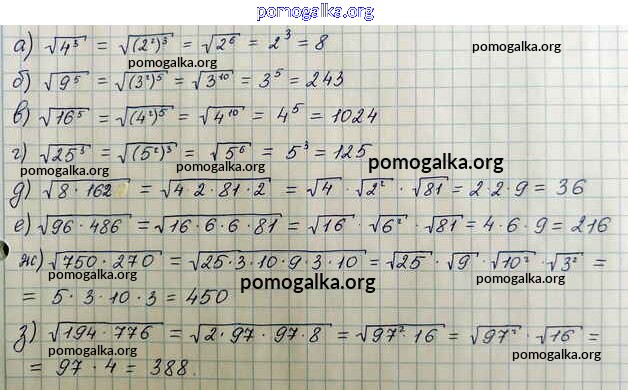 pomogalka.org
а) √4³ = √(2²)³ = √2⁶ = 2³ = 8
pomogalka.org
pomogalka.org
б) √9⁵ = √(3²)⁵ = √3¹⁰ = 3⁵ = 243
pomogalka.org
в) √16⁵ = √(4²)⁵ = √4¹⁰ = 4⁵ = 1024
г) √25³ = √(5²)³ = √5⁶ = 5³ = 125
pomogalka.org
pomogalka.org
pomogalka.org
д) √8·162 = √4·2·81·2 = √4 · √2² · √81 = 2·2·9 = 36
е) √96·486 = √16·6·6·81 = √16 · √6² · √81 = 4·6·9 = 216
ж) √750·270 = √25·3·10·9·3·10 = √25 · √9 · √10² · √3² =
pomogalka.org
pomogalka.org
= 5·3·10·3 = 450
pomogalka.org
з) √194·776 = √2·97·97·8 = √97²·16 = √97² · √16 =
pomogalka.org
pomogalka.org
= 97·4 = 388.